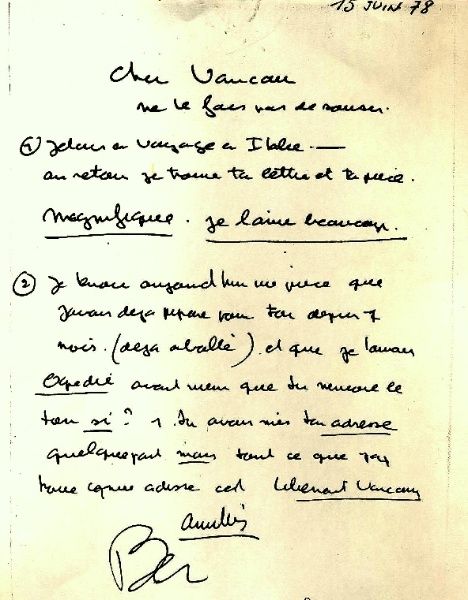 15 JUIN 78
Cher Vaucau
ne le fais pas de
① J'étais en voyage en Italie. —
au retour je trouve ta lettre et ta pièce.
magnifique. je l'aime beaucoup.
② je trouve aujourd'hui une pièce que
j'avais deja préparé pour toi depuis 7
mois. (deja emballé). et que je l'avais
expedié avant meme que tu
si? tu avais mis ton adresse
quelque part mais tout ce que j'ai
trouvé comme adresse est
amitiés
Ben